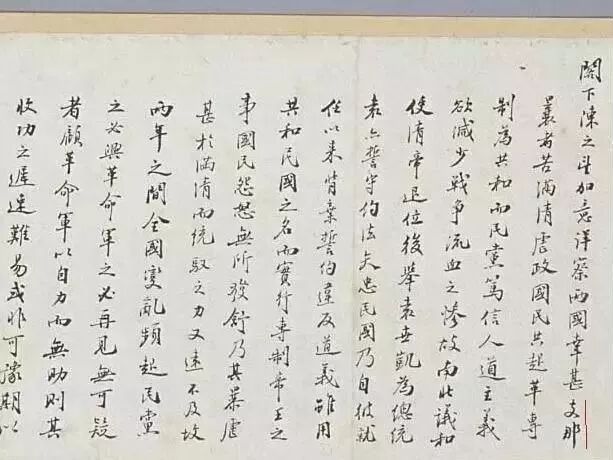 閣下陳之加意詳察兩國幸甚支那
曩者苦滿清虐政國民共起革專
制為共和而民黨篤信人道主義
欲減少戰爭流血之慘故南北議和
使清帝退位後舉袁世凱為總統
袁亦誓守約法矢忠民國乃自彼就
任以來背棄誓約違反道義雖用
共和民國之名而實行專制帝王之
事國民怨怒無所發舒乃其暴虐
甚於滿清而統馭之力又遠不及故
兩年之間全國變亂頻起民黨
之必興革命軍之必再見無可疑
者顧革命軍以自力而無助則其
收功之遲速難易或非可豫期以